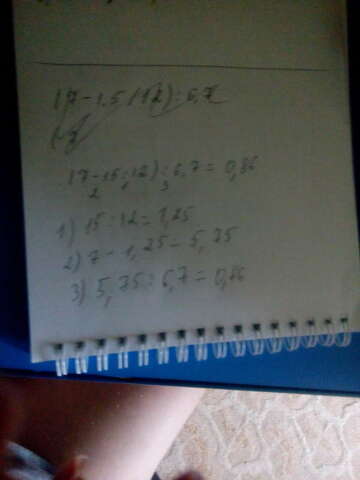 (7-1,5:12):6,7
(7-15:12):6,7=0,86
2 1 3
1) 15:12=1,25
2) 7-1,25=5,75
3) 5,75:6,7=0,86